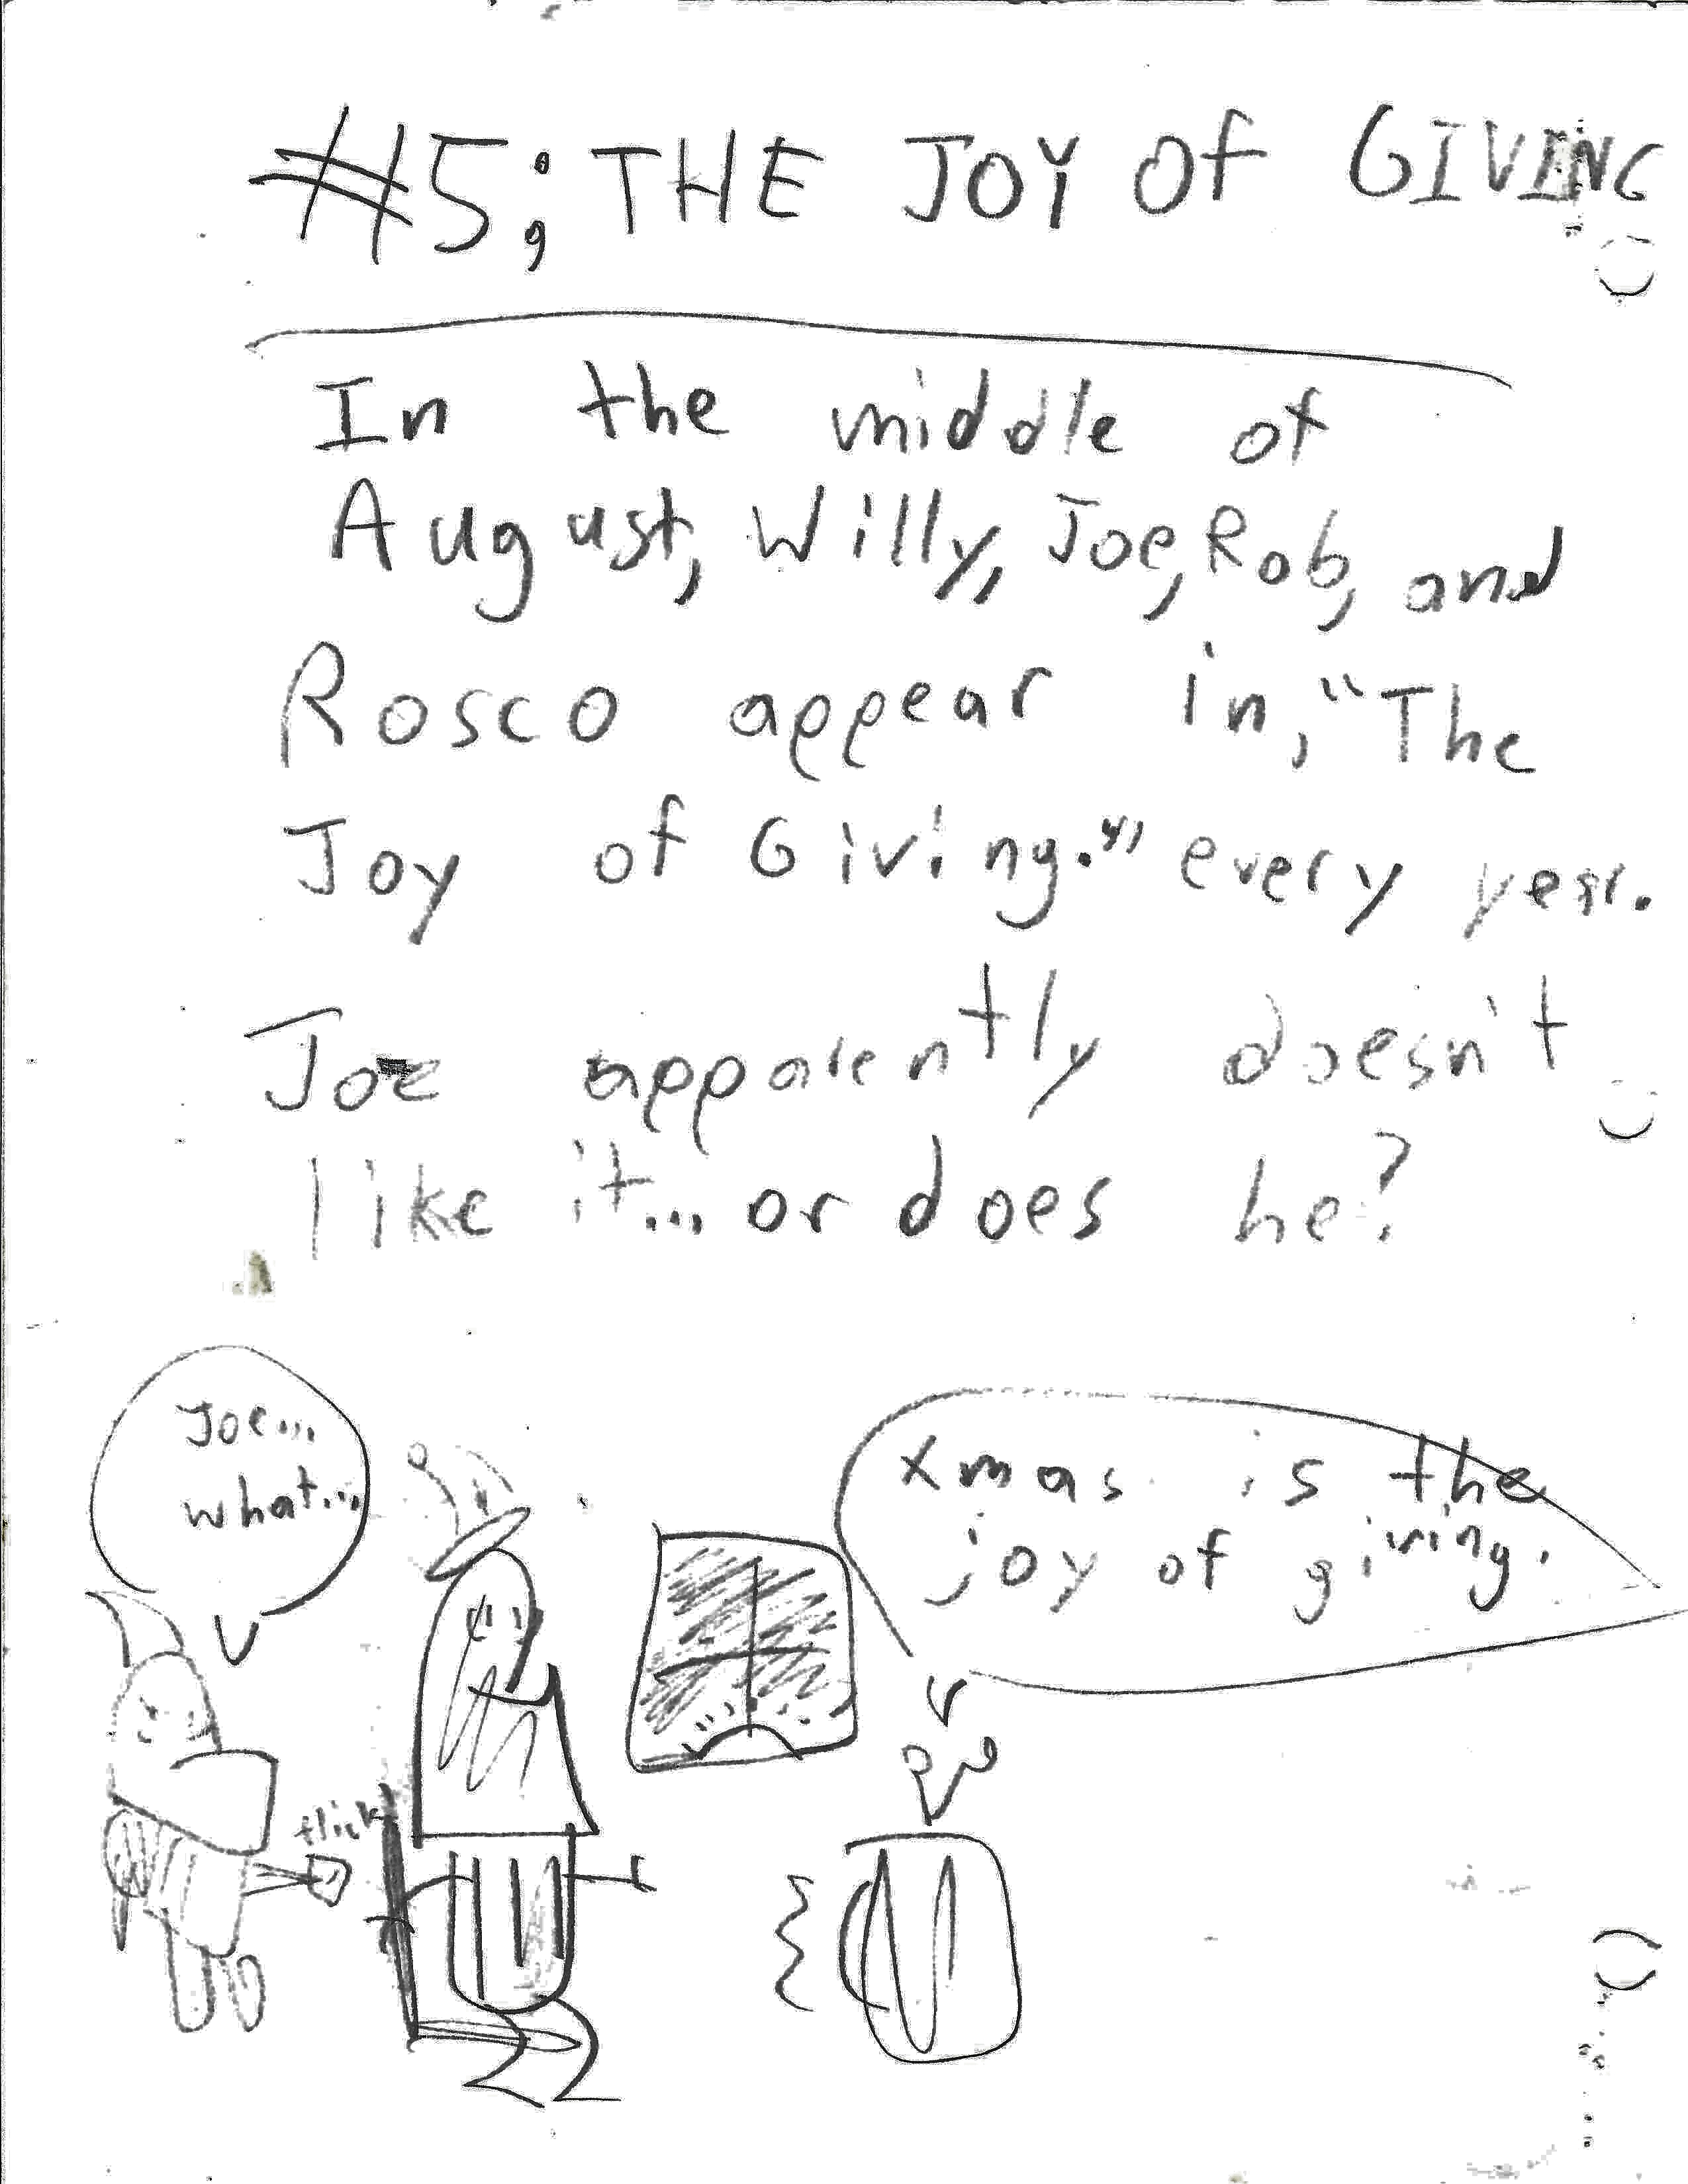 #5: THE JOY OF GIVING
In the middle of
August, Willy, Joe, Rob, and
Rosco appear in, "The
Joy of Giving." every year.
Joe apparently doesn't
like it... or does he?
Joe...
what...
Xmas is the
joy of giving.
flick